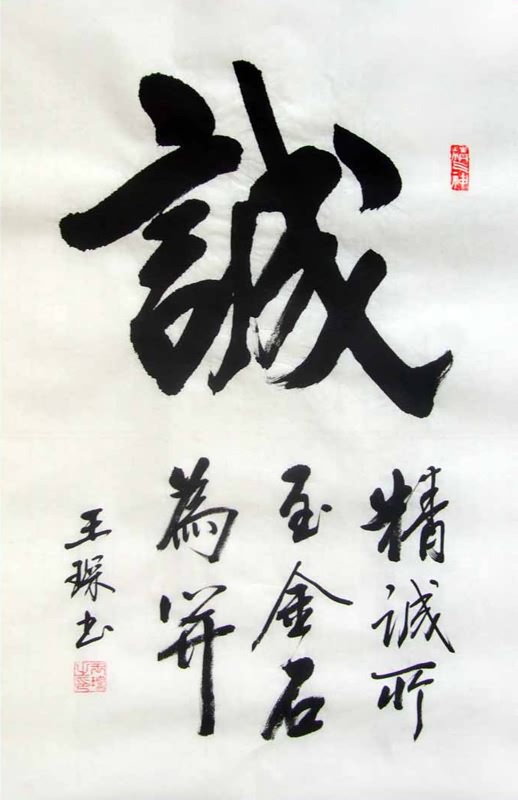 誠
精诚所
至金石
為開
王琛书